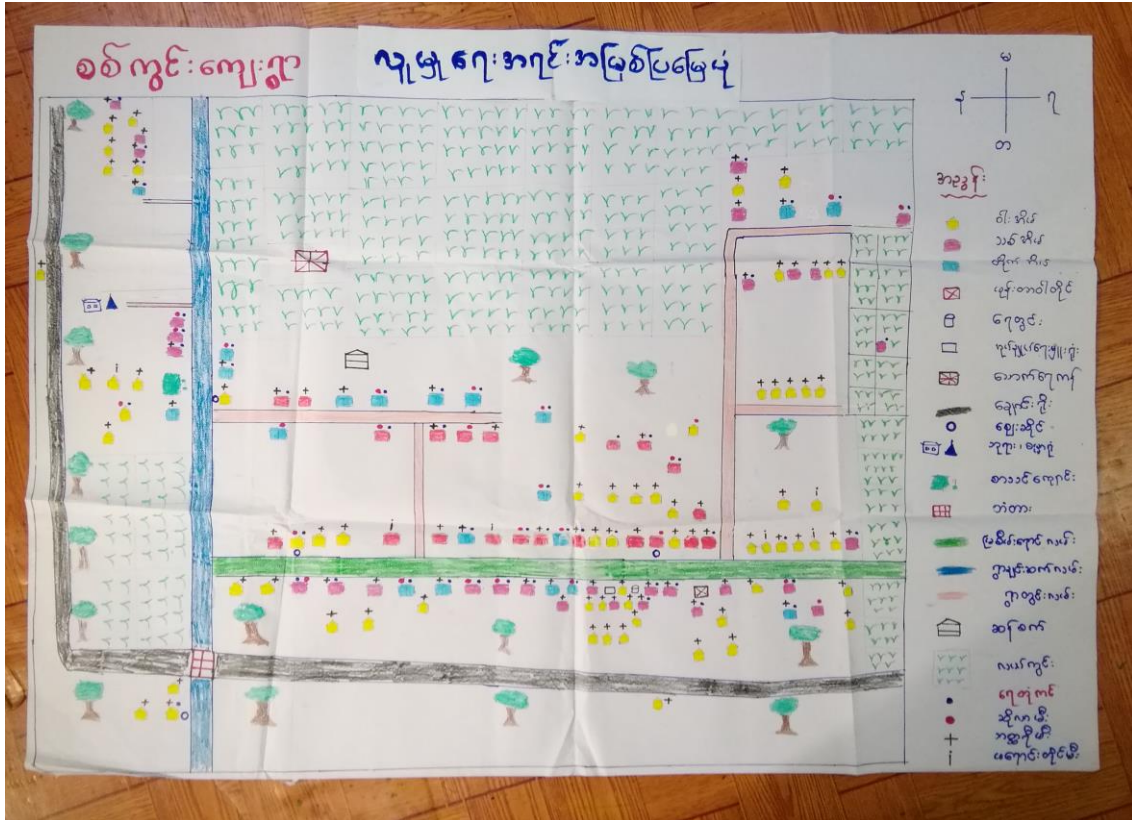 စစ်ကွင်းကျေးရွာ လူမှုရေးအရင်းအမြစ်ပြမြေပုံ
မ
န ရ
တ
အညွှန်း
ဝါးအိမ်
သစ်အိမ်
တိုက်အိမ်
ဖုန်းတာဝါတိုင်
ရေတွင်း
သောက်ရေကန်
ချောင်းရိုး
ဈေးဆိုင်
စာသင်ကျောင်း
တံတား
မြစိမ်းရောင်လမ်း
ရွာချင်းဆက်လမ်း
ရွာတွင်းလမ်း
ဆန်စက်
လယ်ကွင်း
ရေတုံကင်
ဆိုလာမီး
ဘတ္ထရီမီး
ဖယောင်းတိုင်မီး